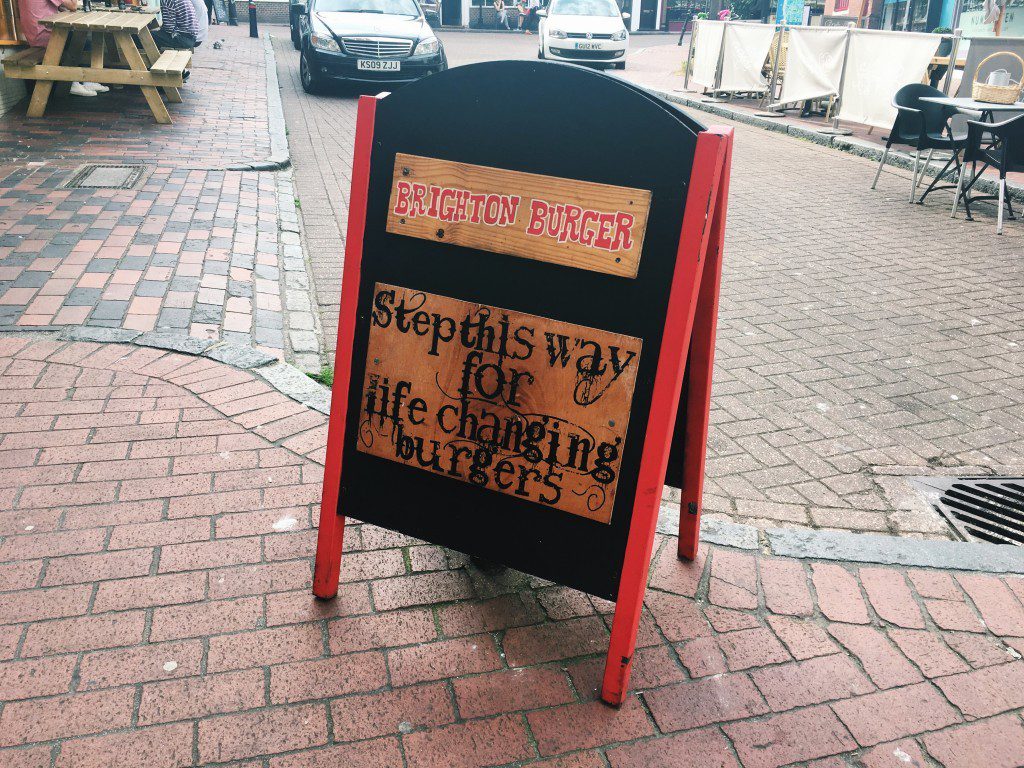 KS09 ZJJ
GU12 WVC
BRIGHTON BURGER
Step this way
for
life changing
burgers